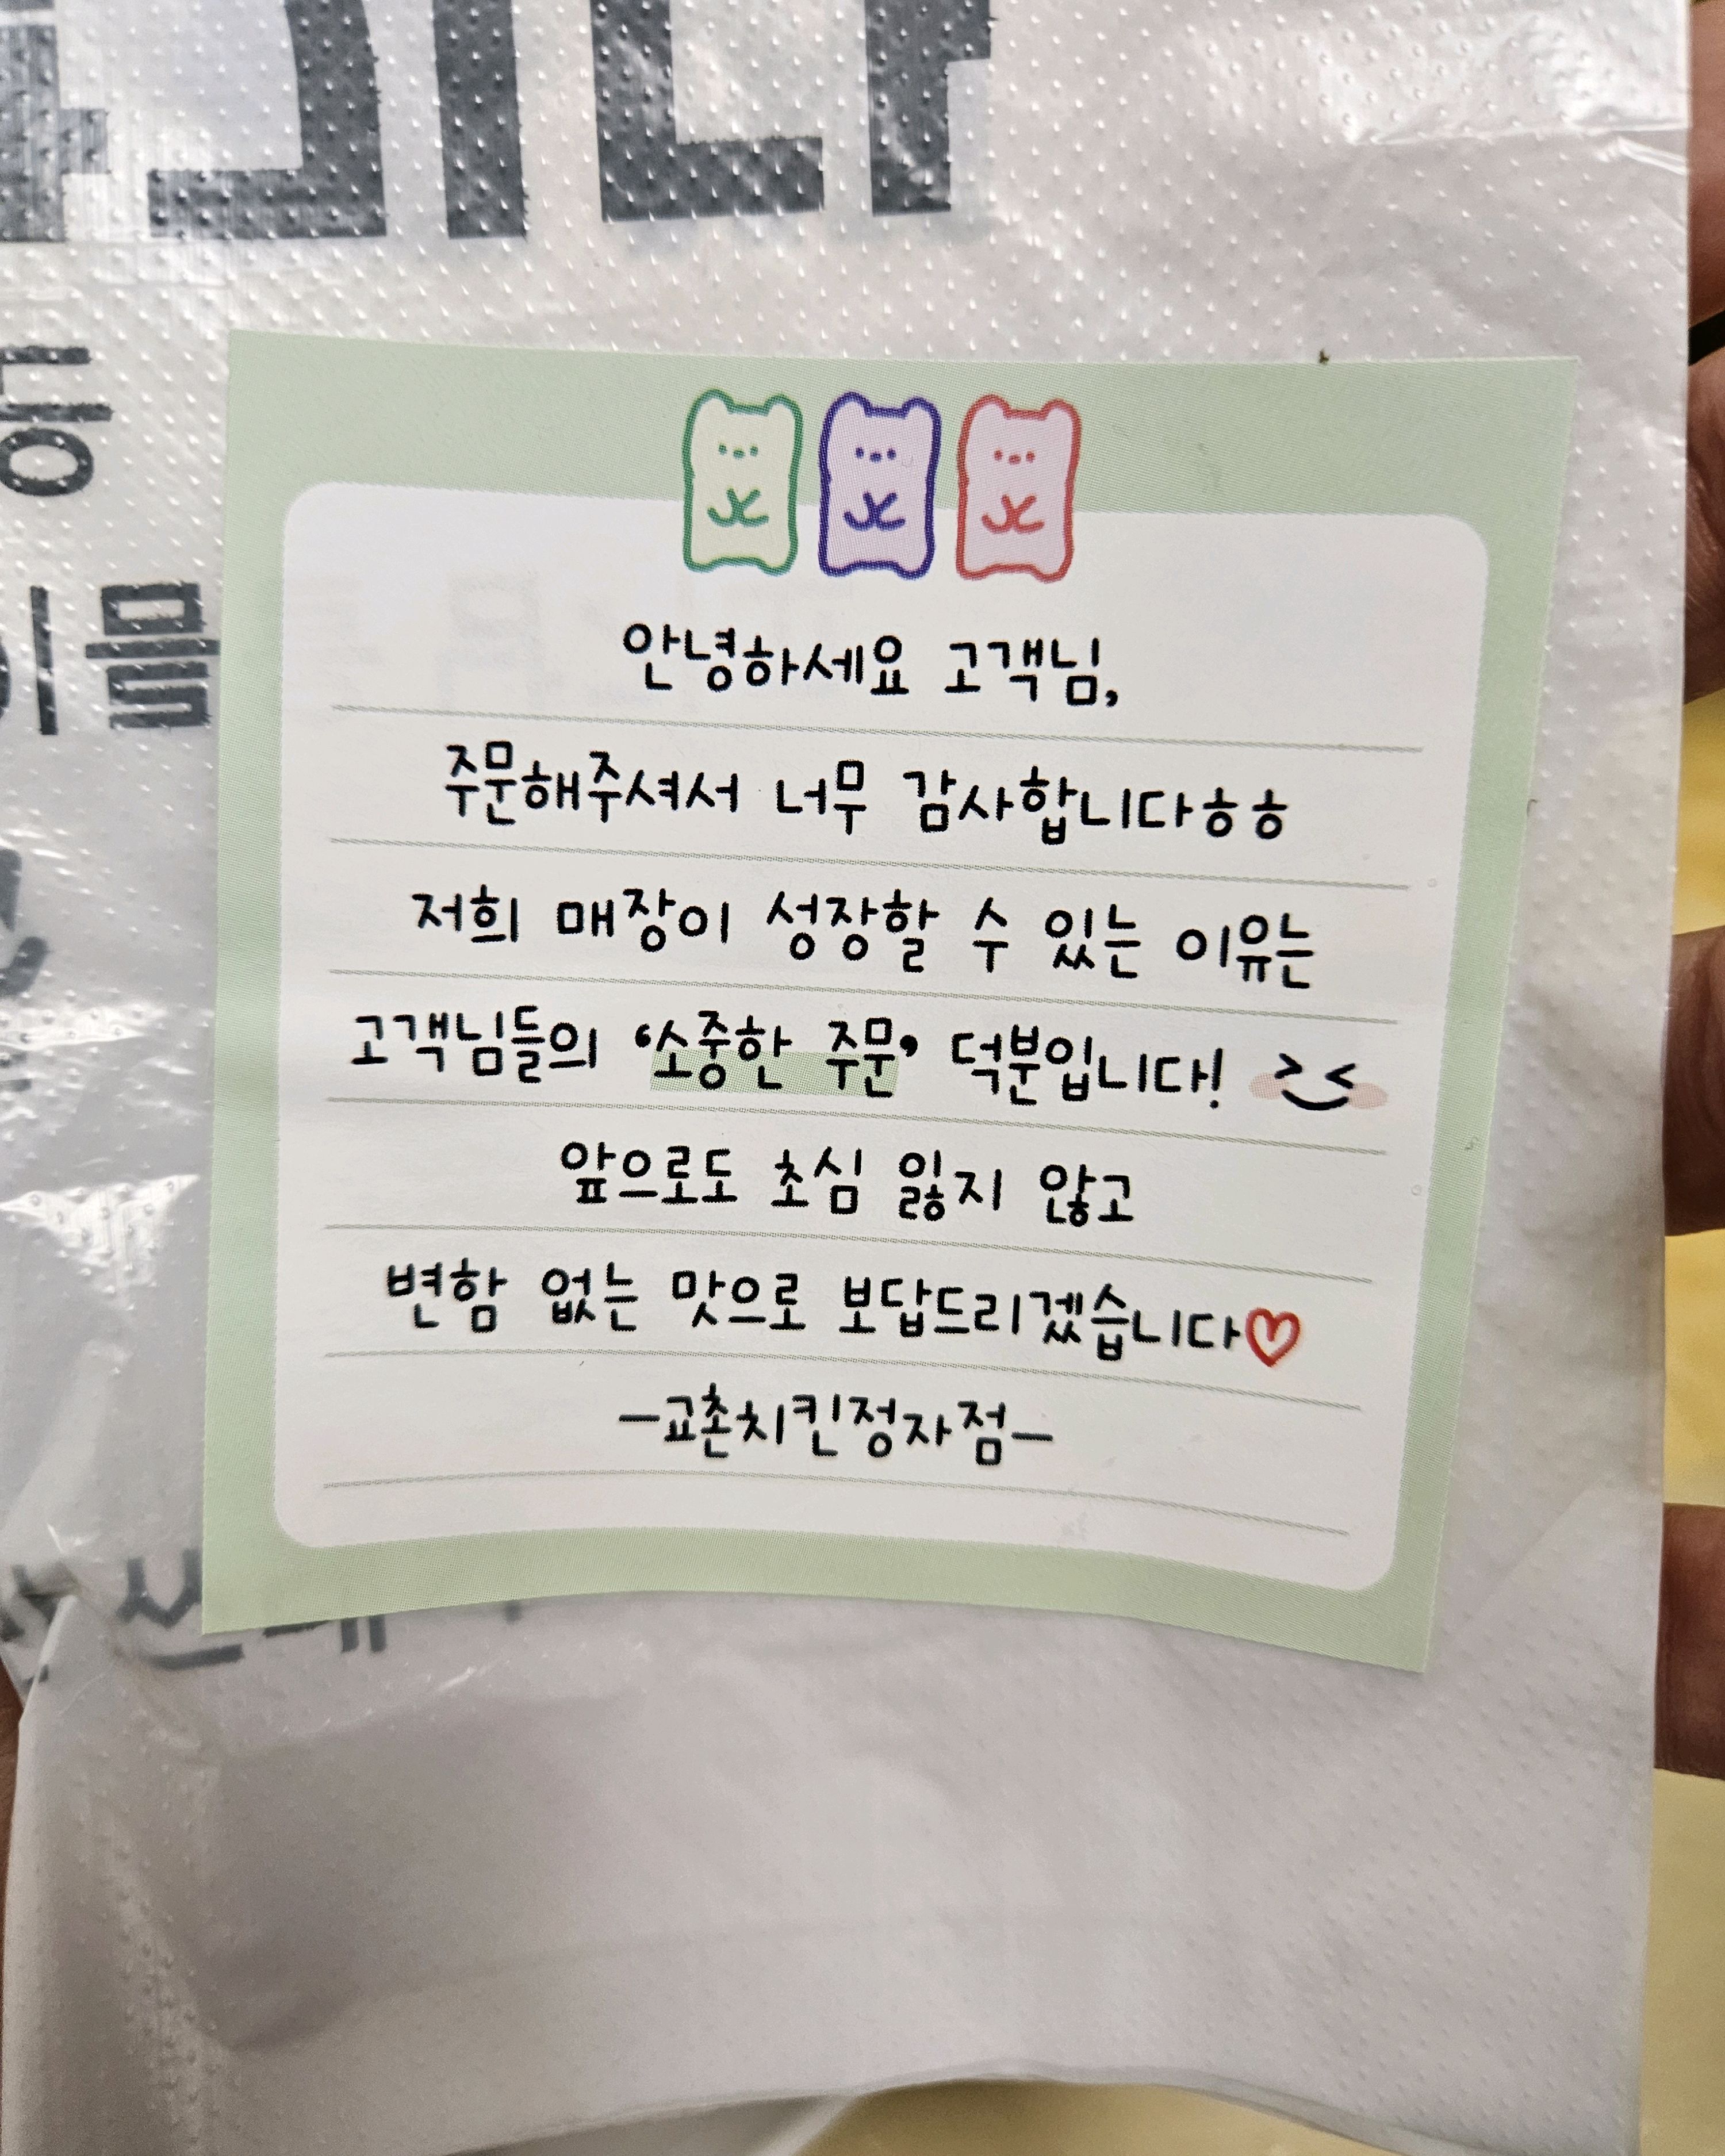 안녕하세요 고객님,
주문해주셔서 너무 감사합니다ㅎㅎ
저희 매장이 성장할 수 있는 이유는
고객님들의 ‘소중한 주문’ 덕분입니다!
앞으로도 초심 잃지 않고
변함 없는 맛으로 보답드리겠습니다♡
-교촌치킨정자점-